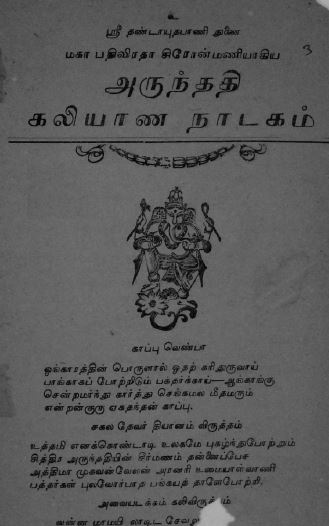 உ
ஸ்ரீ தண்டாயுதபாணி துணை
மகா பதிவிரதா சிரோன்மணியாகிய
3
அருந்ததி
கலியாண நாடகம்
காப்பு வெண்பா
ஒங்காரத்தின் பொருளால் ஒதற் கரிதுருவாய்
பாங்காகப் போற்றிடும்
சென்றமர்ந்து கார்த்து செங்கமல மீதமரும்
என்றன்குரு ஏகதந்தன் காப்பு.
சகல தேவர் தியானம் விருத்தம்
உத்தமி எனக்கொண்டாடி உலகமே புகழ்ந்துபோற்றும்
சித்திர அருந்ததியின் தன்னைப்பேச
அத்திமா முகவன்வேலன் அரனரி உமையாள்வாணி
பத்தர்கள் பங்கயத் தாளேபோற்றி.
அவையடக்கம் கலிவிருத்தம்